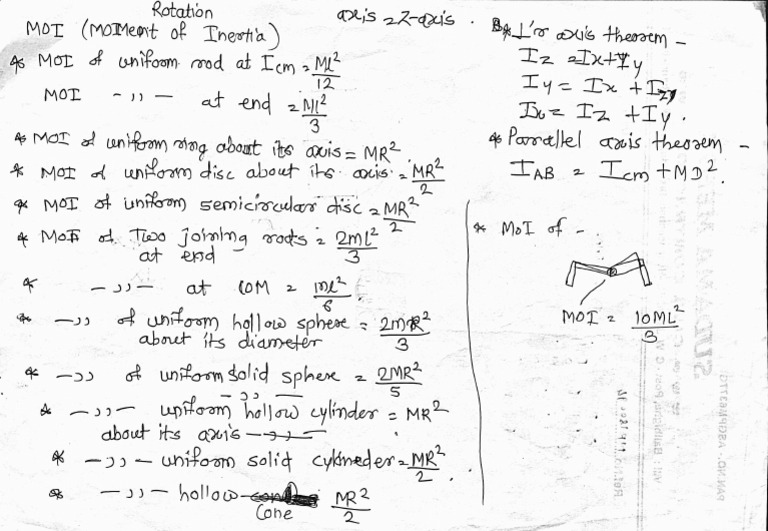 Rotation
axis = Z-axis.
MOI (MOMent of Inertia)
* MOI of uniform rod at Icm = Ml²/12
MOI -〃- at end = Ml²/3
* MOI of uniform ring about its axis = MR²
* MOI of uniform disc about its axis = MR²/2
* MOI of uniform semicircular disc = MR²/2
* MOI of Two joining rods = 2ml²/3
at end
* -〃- at COM = ml²/6
* -〃 of uniform hollow sphere = 2mR²/3
about its diameter
* -〃 of uniform solid sphere = 2MR²/5
-〃-
* -〃- uniform hollow cylinder = MR²
about its axis -〃-
* -〃- uniform solid cylineder = MR²/2.
* -〃- hollow Cone MR²/2
* L'r axis theorem -
Iz = Ix+Iy
Iy = Ix + Iz,
Ix = Iz + Iy.
* Parallel axis theorem -
IAB = Icm + MD².
* MOI of -
MOI = 10ML²/3